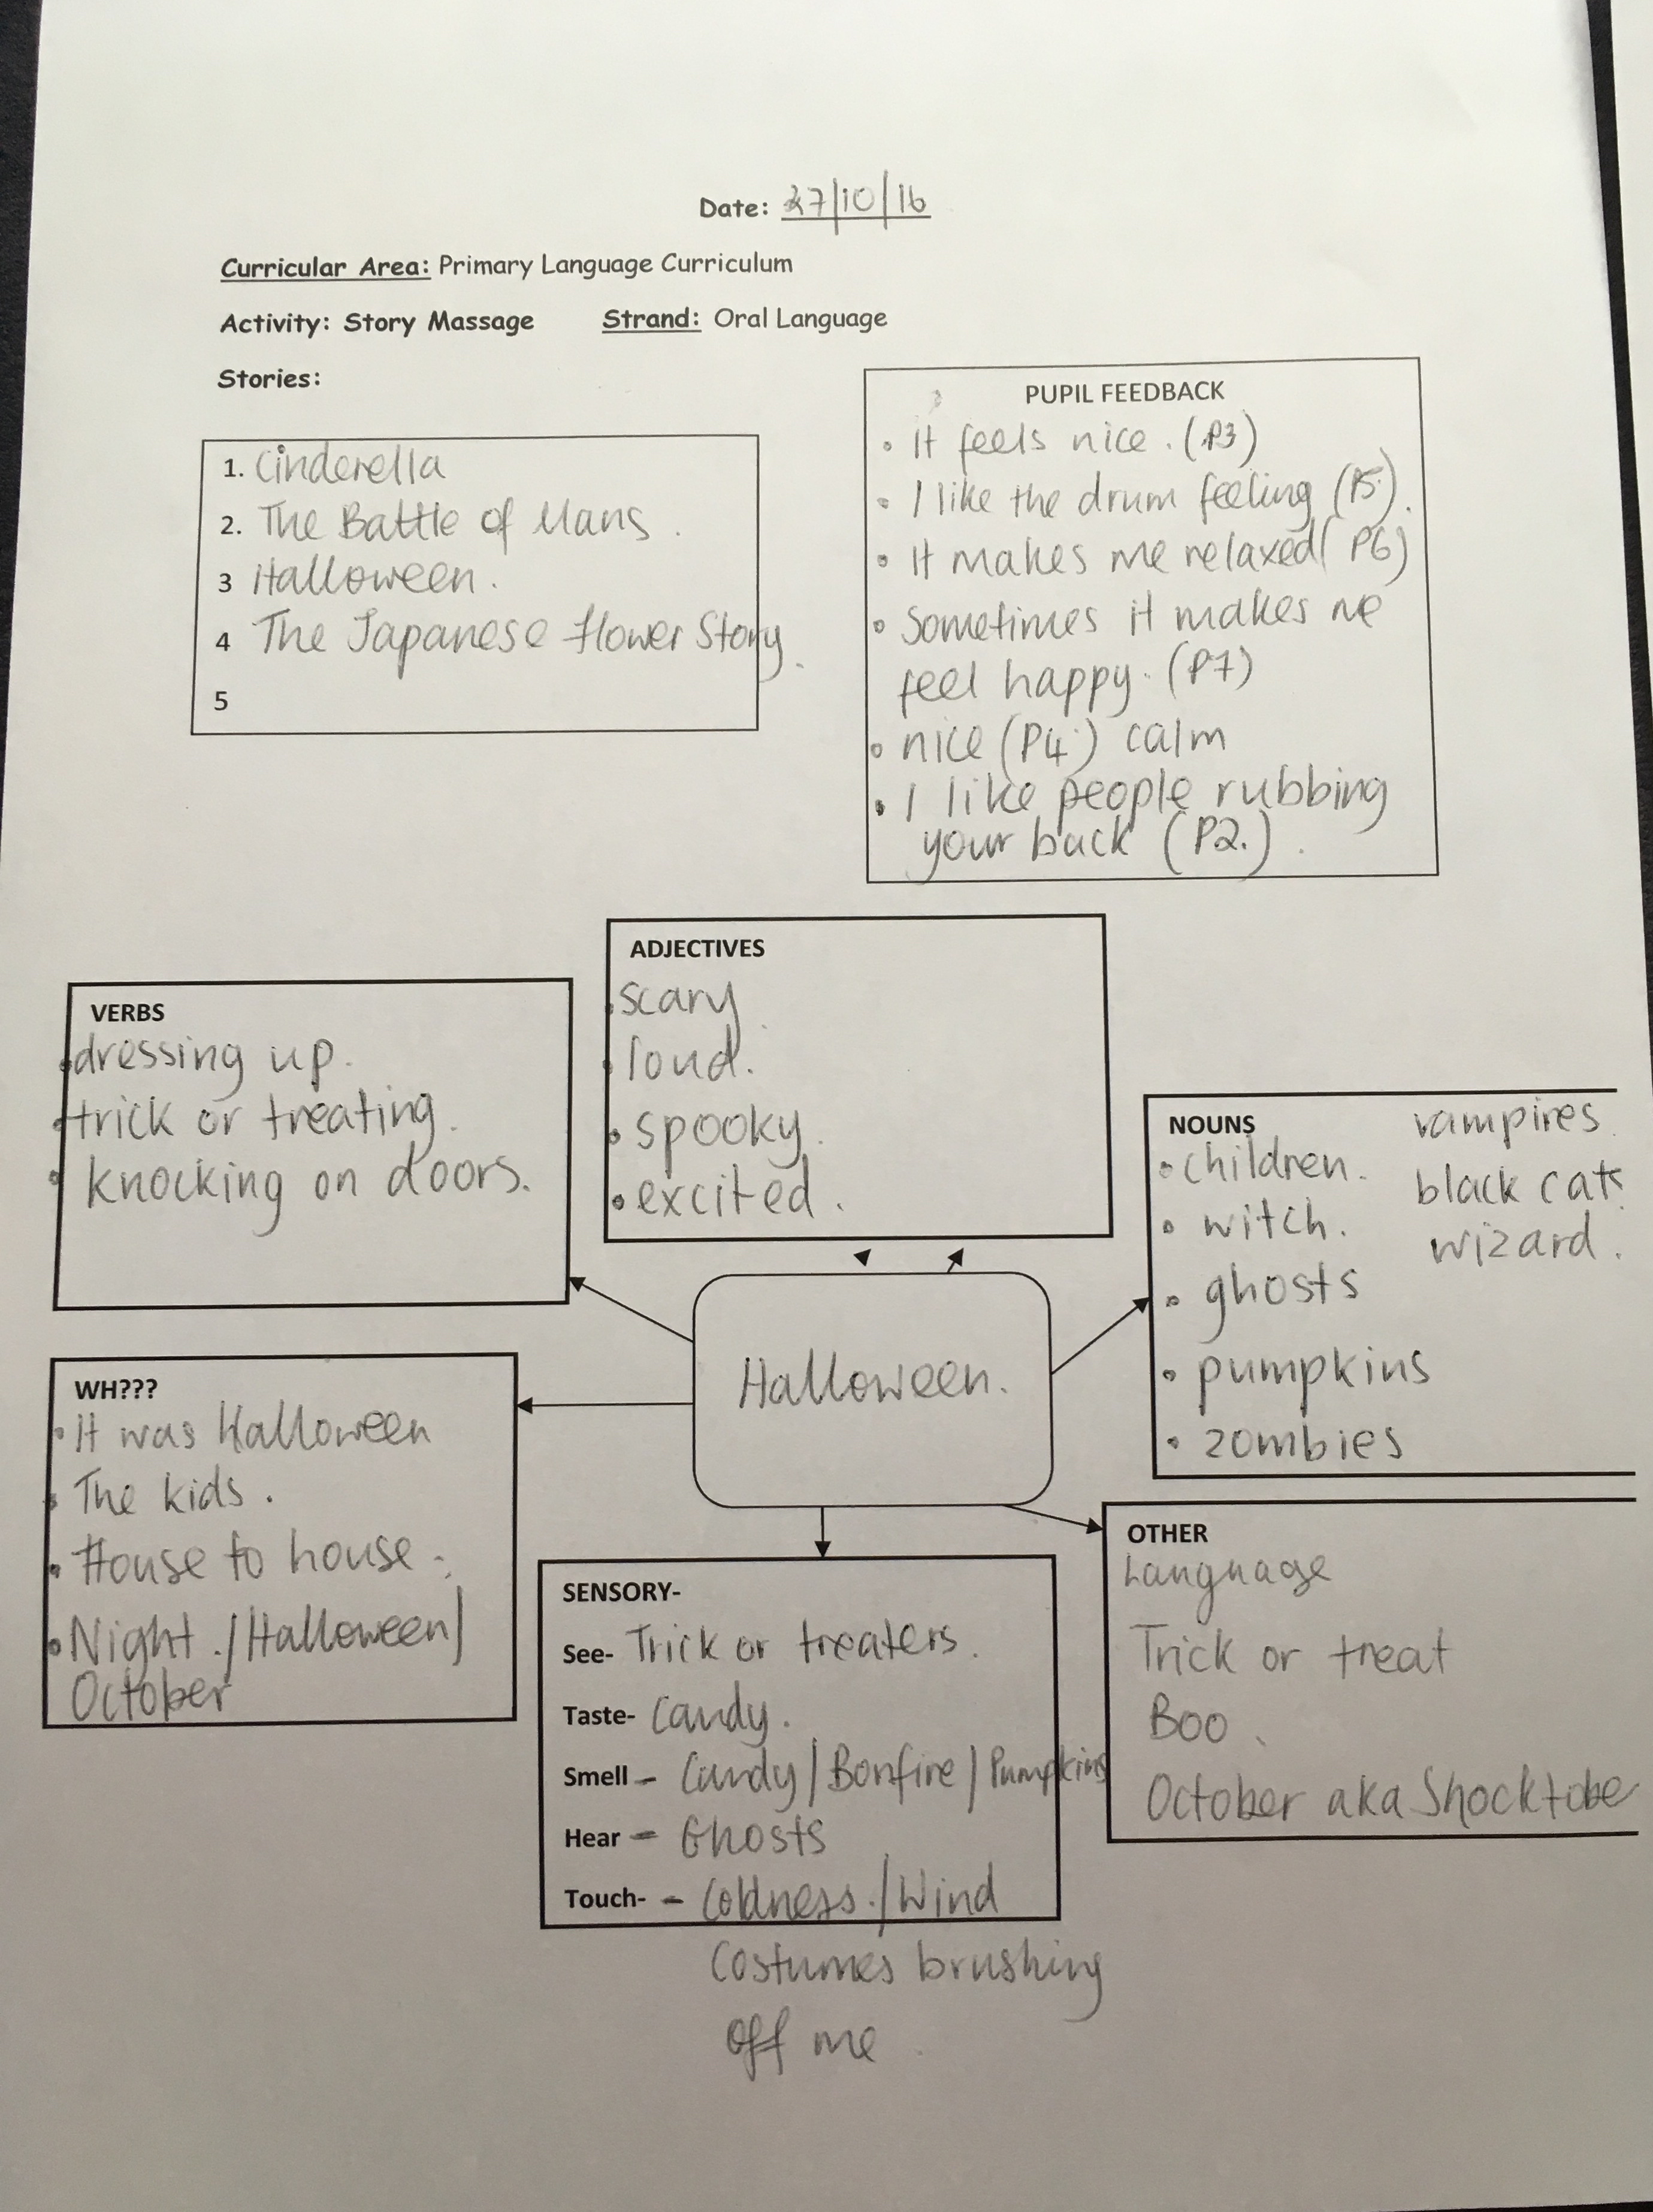 Date: 27/10/16
Curricular Area: Primary Language Curriculum
Activity: Story Massage Strand: Oral Language
Stories:
1. Cinderella
2. The Battle of Mans.
3 Halloween.
4 The Japanese flower Story.
5
PUPIL FEEDBACK
• It feels nice. (P3)
• I like the drum feeling (P5).
• It makes me relaxed (P6)
• Sometimes it makes me
feel happy. (P7)
• nice (P4) calm
• I like people rubbing
your back (P2.).
ADJECTIVES
• scary
• loud.
• spooky.
• excited.
VERBS
• dressing up.
• trick or treating.
• knocking on doors.
NOUNS
• children.
• witch.
• ghosts
• pumpkins
• zombies
vampires
black cats
wizard.
Halloween.
WH???
• It was Halloween
• The kids.
• House to house.
• Night./Halloween/
October
SENSORY-
See- Trick or treaters.
Taste- Candy.
Smell - Candy/Bonfire/Pumpkins
Hear - Ghosts
Touch- - Coldness./Wind
Costumes brushing
off me.
OTHER
Language
Trick or treat
Boo.
October aka Shocktober